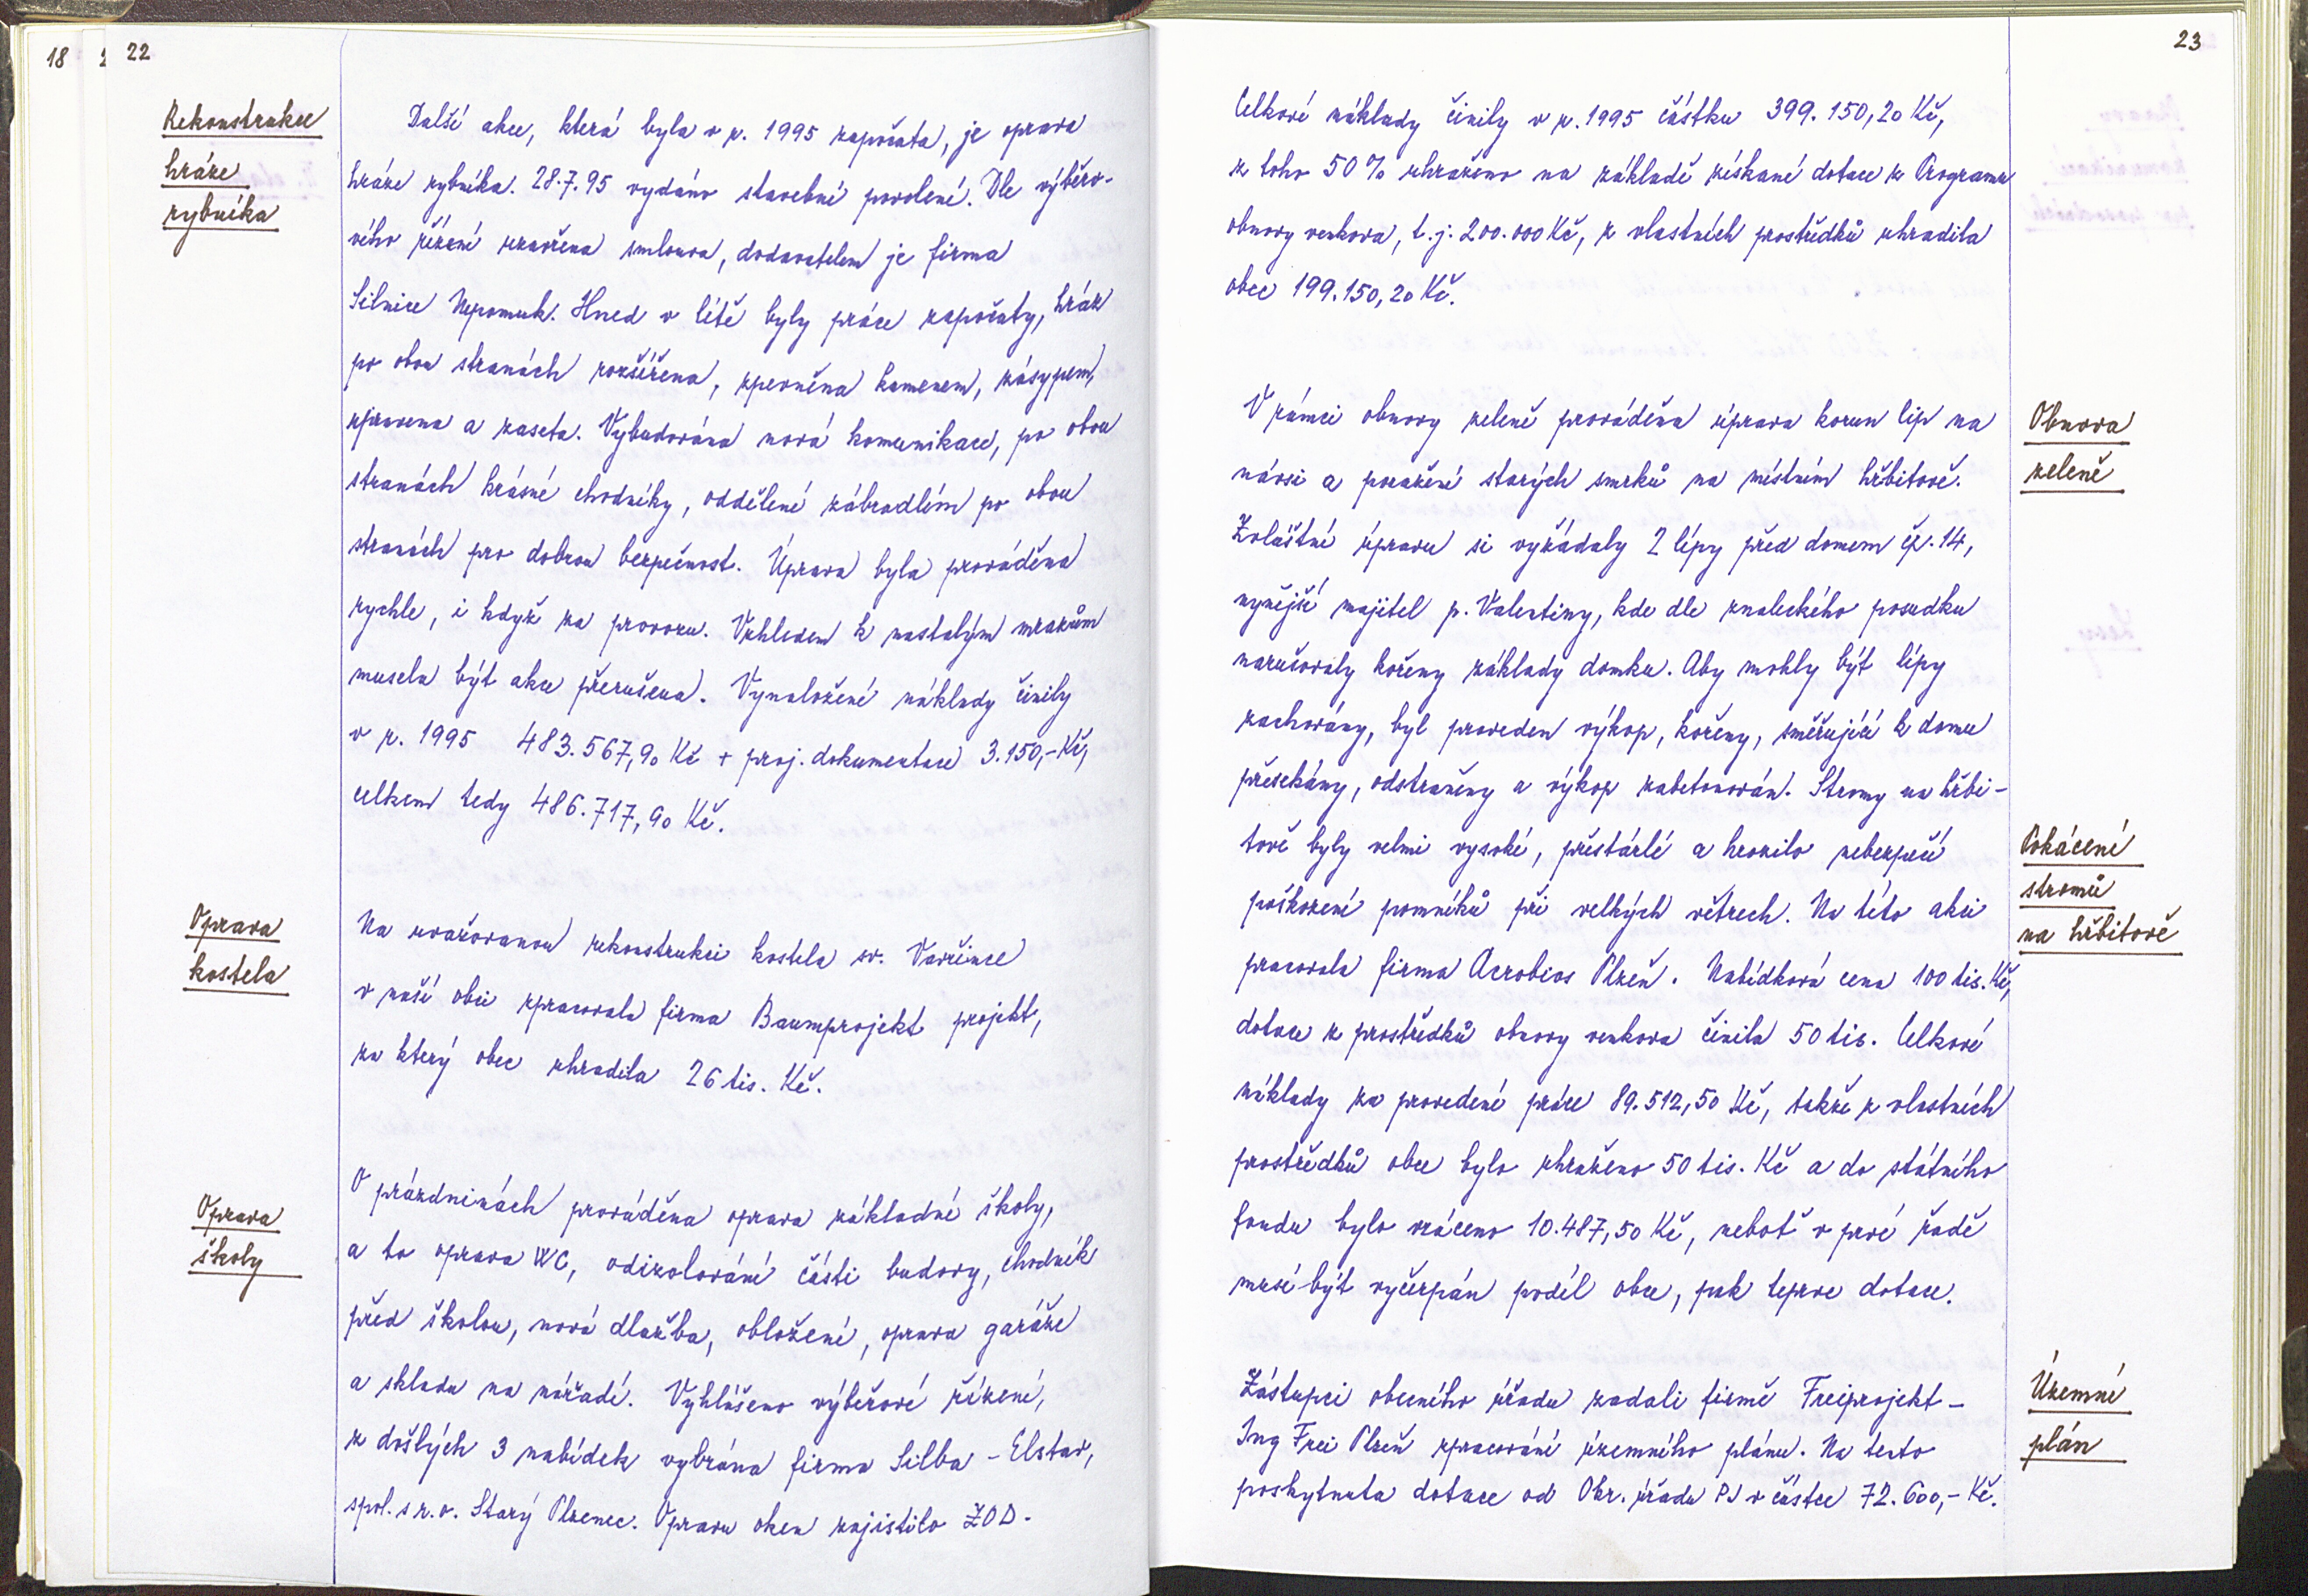 18
22
Rekonstrukce
hráze
rybníka
Další akce, která byla v r. 1995 započata, je oprava
hráze rybníka. 28.7.95 vydáno stavební povolení. Dle výběro-
vého řízení uzavřena smlouva, dodavatelem je firma
Silnice Nepomuk. Hned v létě byly práce započaty, hráz
po obou stranách rozšířena, zpevněna kamenem, zásypem,
upravena a zaseta. Vybudována nová komunikace, po obou
stranách krásné chodníky, oddělené zábradlím po obou
stranách pro dobrou bezpečnost. Úprava byla prováděna
rychle, i když za provozu. Vzhledem k nastalým mrazům
musela být akce přerušena. Vynaložené náklady činily
v r. 1995 483.567,90 Kč + proj. dokumentace 3.150,- Kč,
celkem tedy 486.717,90 Kč.
Oprava
kostela
Na uvažovanou rekonstrukci kostela sv. Vavřince
v naší obci zpracovala firma Baumprojekt projekt,
za který obec uhradila 26 tis. Kč.
Oprava
školy
O prázdninách prováděna oprava základní školy,
a to oprava WC, odizolování části budovy, chodník
před školou, nová dlažba, obložení, oprava garáže
a skladu na nářadí. Vyhlášeno výběrové řízení,
z došlých 3 nabídek vybrána firma Silba - Elstav,
spol. s r. o. Starý Plzenec. Opravu oken zajistilo ZOD.
23
Celkové náklady činily v r. 1995 částku 399.150,20 Kč,
z toho 50% uhrazeno na základě získané dotace z Programu
obnovy venkova, t.j. 200.000 Kč, z vlastních prostředků uhradila
obec 199.150,20 Kč.
Obnova
zeleně
V rámci obnovy zeleně prováděna úprava korun lip na
návsi a poražení starých smrků na místním hřbitově.
Zvláštní úpravu si vyžádaly 2 lípy před domem čp. 14,
nynější majitel p. Valentiny, kde dle znaleckého posudku
narušovaly kořeny základy domku. Aby mohly být lípy
zachovány, byl proveden výkop, kořeny, směřující k domu
přesekány, odstraněny a výkop zabetonován. Stromy na hřbi-
tově byly velmi vysoké, přestárlé a hrozilo nebezpečí
poškození pomníků při velkých větrech. Na této akci
pracovala firma Acrobios Plzeň. Nabídková cena 100 tis. Kč,
dotace z prostředků obnovy venkova činila 50 tis. Celkové
náklady za provedené práce 89.512,50 Kč, takže z vlastních
prostředků obce bylo uhrazeno 50 tis. Kč a do státního
fondu bylo vráceno 10.487,50 Kč, neboť v prvé řadě
musí být vyčerpán podíl obce, pak teprve dotace.
Pokácení
stromů
na hřbitově
Územní
plán
Zástupci obecního úřadu zadali firmě Freiprojekt -
Ing Frei Plzeň zpracování územního plánu. Na tento
poskytnuta dotace od Okr. úřadu PJ v částce 72.600,- Kč.